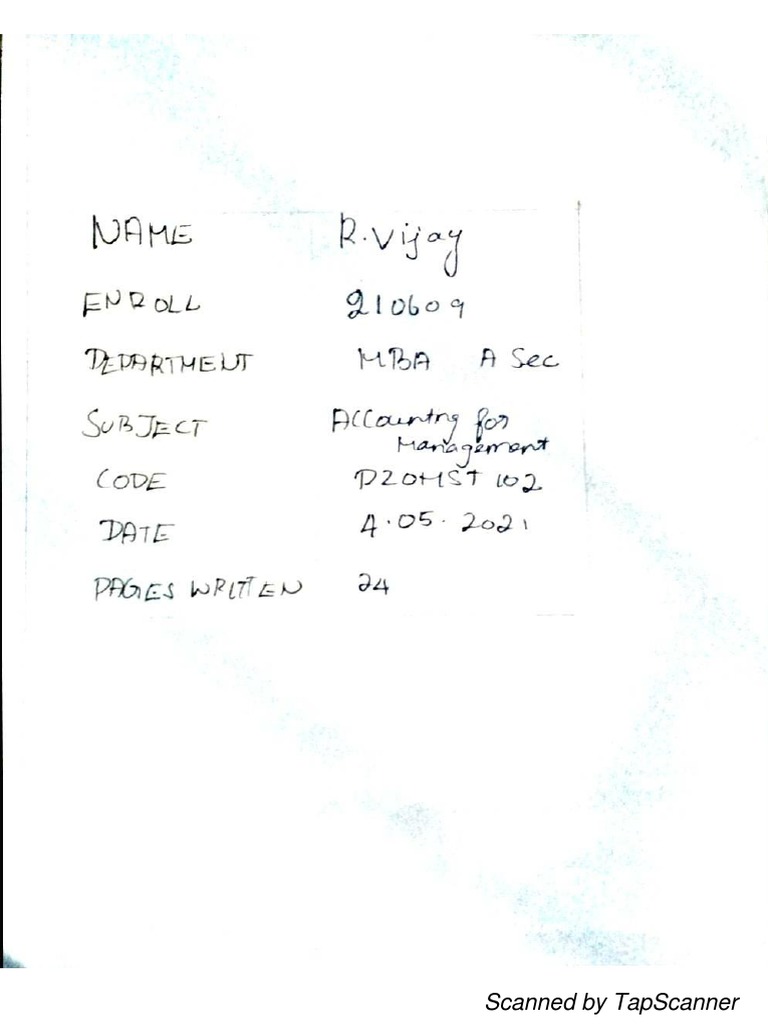 NAME R. Vijay
ENROLL 210609
DEPARTMENT MBA A Sec
SUBJECT Accounting for
Management
CODE P20MST 102
DATE 4.05.2021
PAGES WRITTEN 24
Scanned by TapScanner